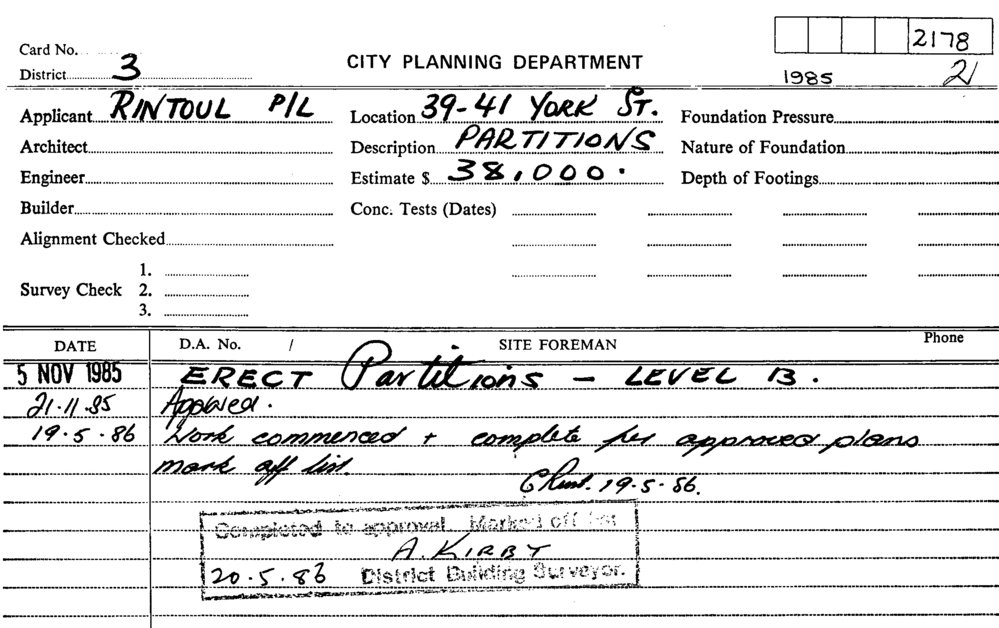 2178
Card No.
CITY PLANNING DEPARTMENT
District 3
1985 21
Applicant RINTOUL P/L Location 39-41 YORK ST. Foundation Pressure
Architect Description PARTITIONS Nature of Foundation
Engineer Estimate $ 38,000. Depth of Footings
Builder Conc. Tests (Dates)
Alignment Checked
1.
Survey Check 2.
3.
DATE D.A. No. / SITE FOREMAN Phone
5 NOV 1985 ERECT Partitions - LEVEL 13.
21.11.85 Approved.
19.5.86 Work commenced + complete per approved plans
mark off list.
19.5.86.
Completed to approval. Marked off list
A. KIRBY
20.5.86 District Building Surveyor.